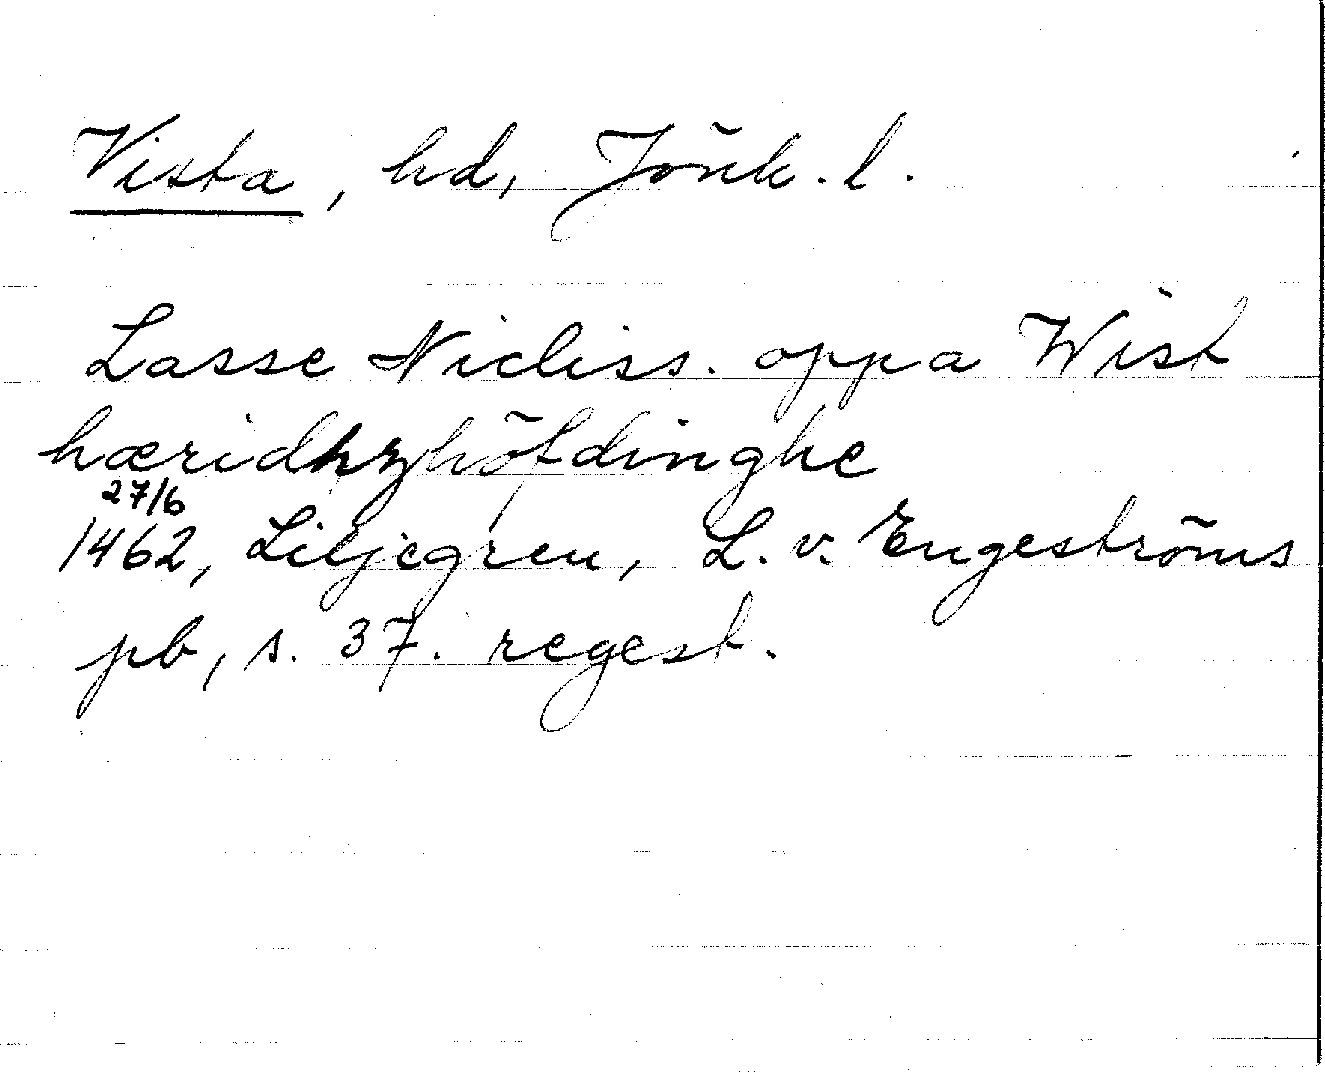 Vista, hd, Jönk. l.
Lasse Nicliss. oppa Wist
hæridhzhöfdinghe
27/6
1462, Liljegren, L. v. Engeströms
pb, s. 37. regest.